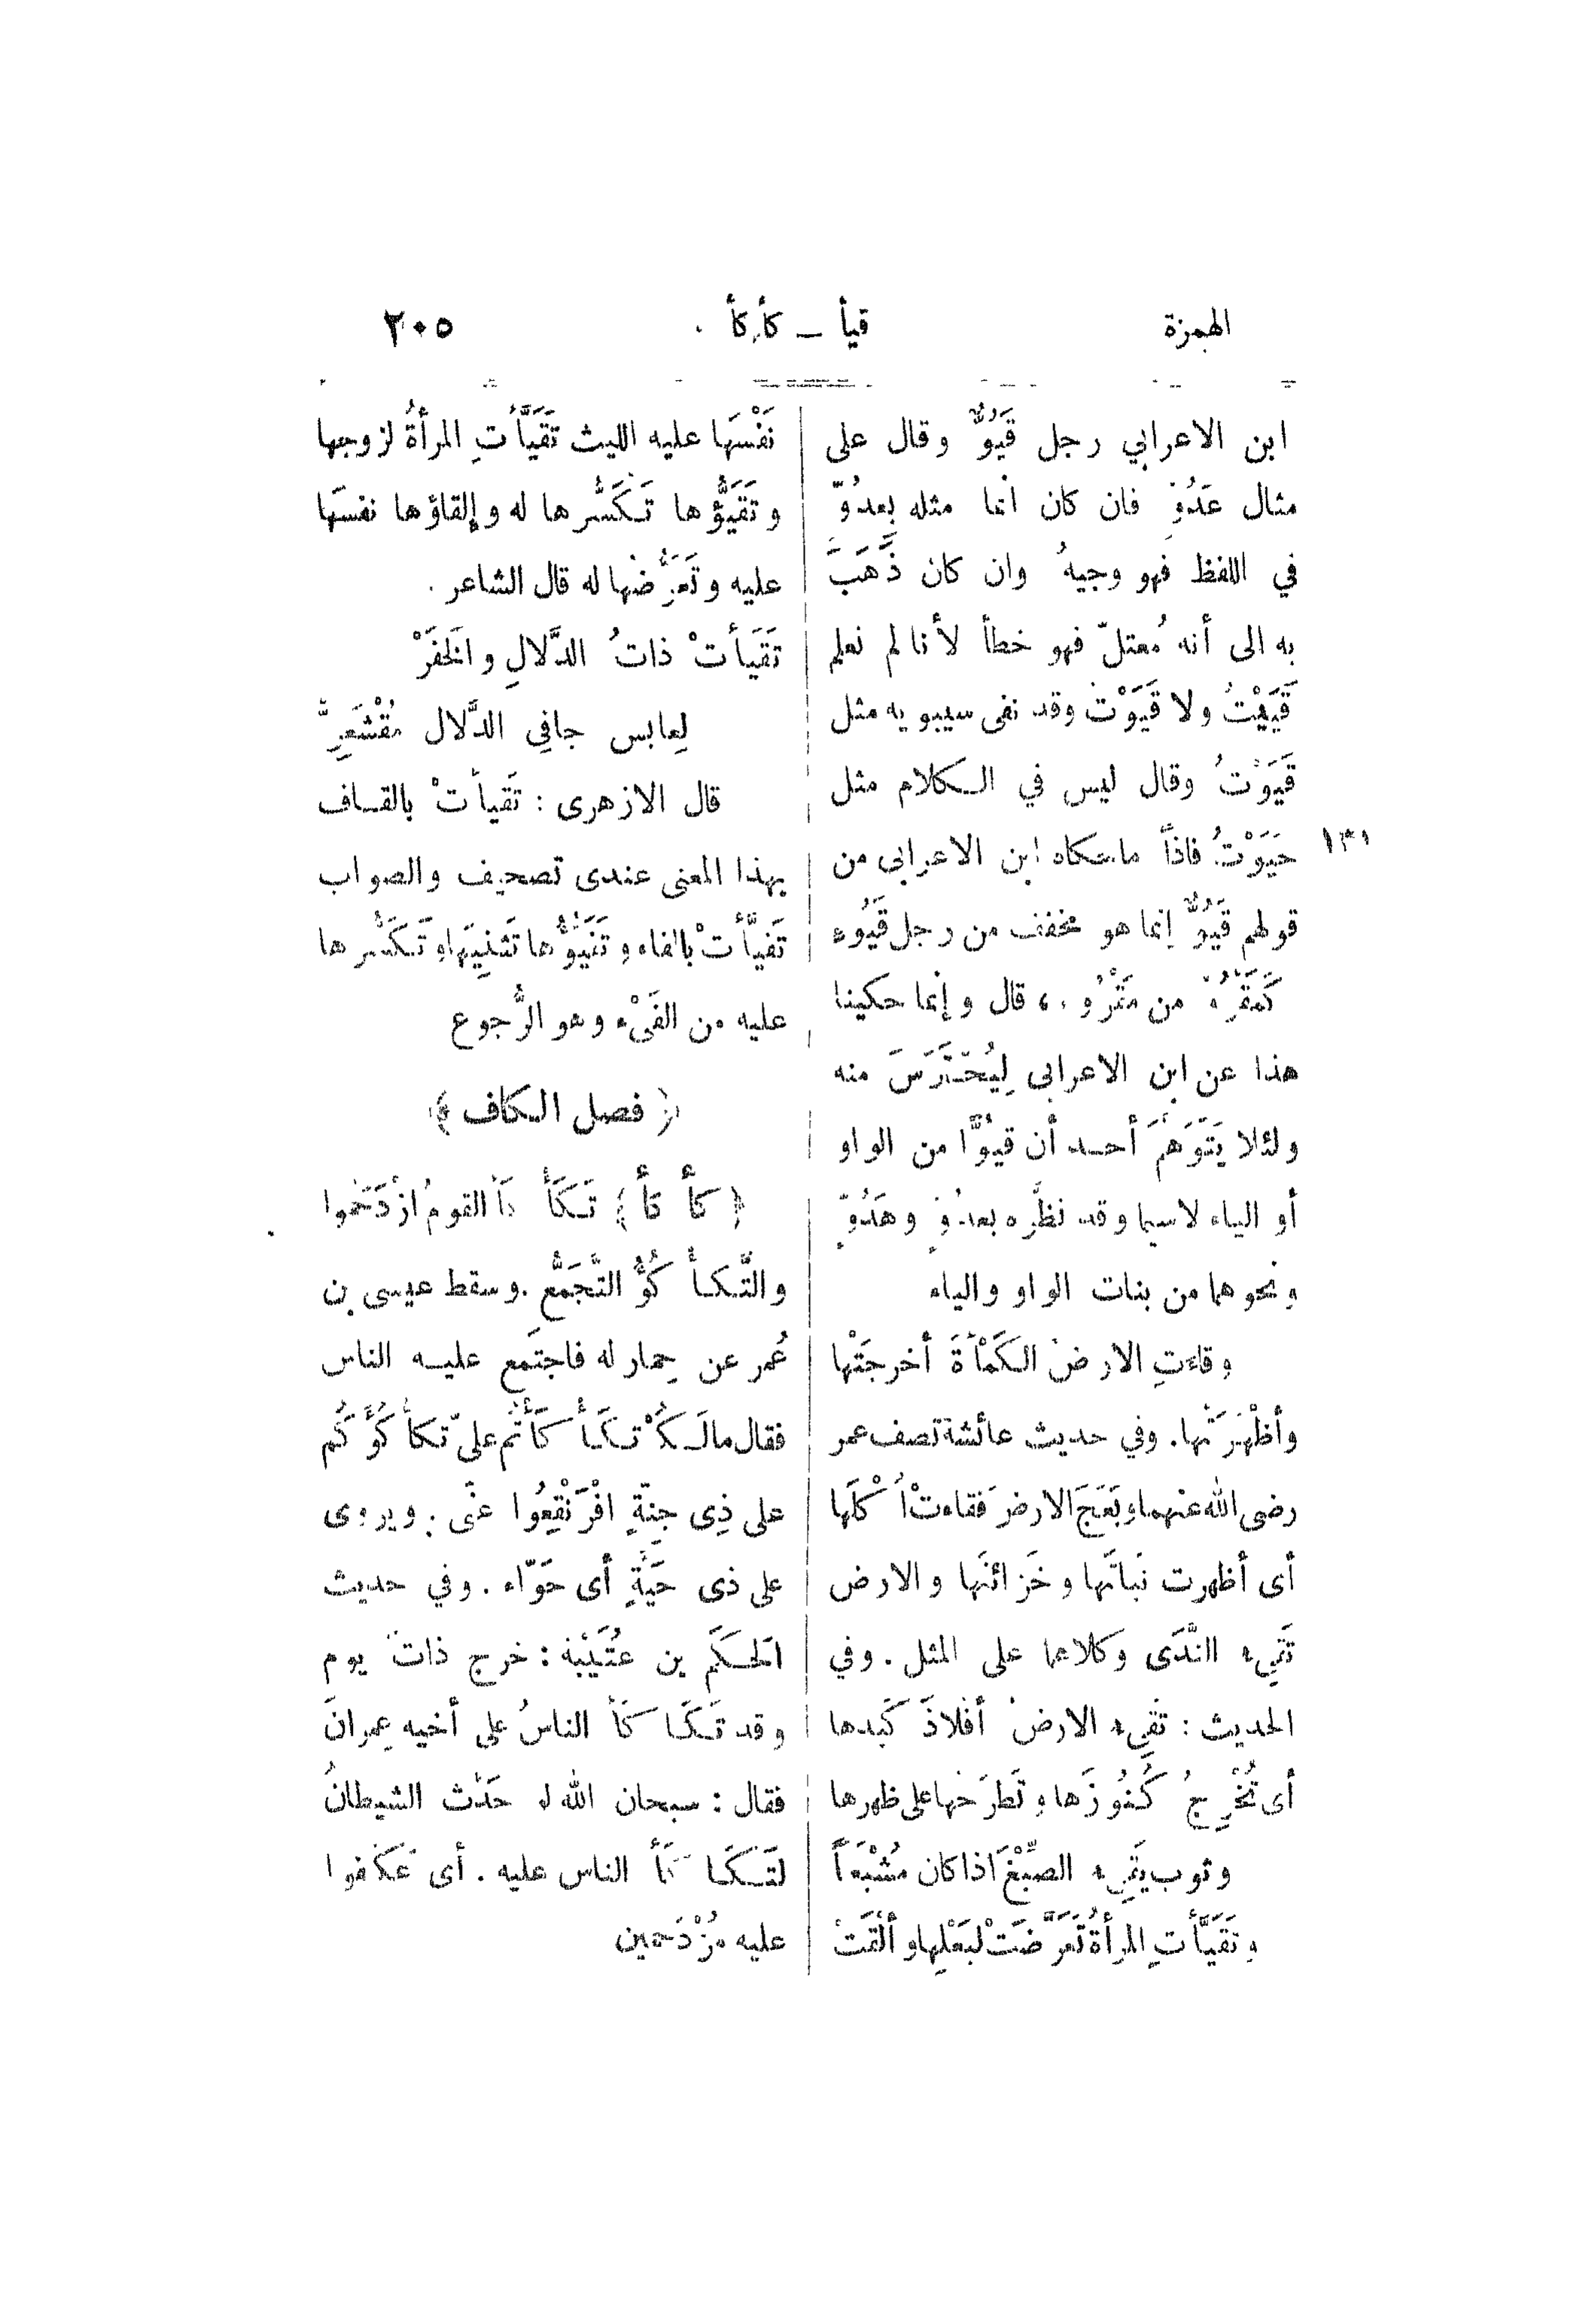 الهمزة
قيأ — كأكأ
٢٠٥
ابن الاعرابي رجل قَيُوٌّ وقال على
مثال عَدُوٍّ فان كان انما مثله بعدُوّ
في اللفظ فهو وجيهٌ وان كان ذَهَبَ
به الى أنه مُعتلّ فهو خطأ لأنا لم نعلم
قَيَيْتُ ولا قَيَوْتُ وقد نفى سيبويه مثل
قَيَوْتُ وقال ليس في الكلام مثل
حَيَوْتُ فاذاً ما حكاه ابن الاعرابى من
١٣١
قولهم قَيُوٌّ إنما هو مخفف من رجل قَيُوء
كَمَقْرُوّ من مَقْرُوء ، قال وإنما حكينا
هذا عن ابن الاعرابى لِيُحْتَرَسَ منه
ولئلا يَتَوَهَّمَ أحد أن قيُوًّا من الواو
أو الياء لاسيما وقد نظَّره بعدُوٍّ وهَدُوٍّ
ونحوهما من بنات الواو والياء
وقاءَتِ الارضُ الكَمْأةَ أخرجَتْها
وأظْهَرَتْها. وفي حديث عائشة تصف عمر
رضى الله عنهما وبَعَجَ الارضَ فقاءتْ أُكْلَها
أى أظهرت نَباتَها وخَزائنَها والارض
تَقِيء النَّدَى وكلاهما على المثل . وفي
الحديث : تقِيء الارضُ أفلاذَ كَبِدها
أى تُخْرِجُ كُنُوزَها وتَطرَحُها على ظهرها
وثوب يَقِيء الصِّبْغَ اذا كان مُشْبَعاً
وتَقَيَّأتِ المرأةُ تَعَرَّضَتْ لبَعْلِها وألْقَتْ
نَفْسَها عليه الليث تَقَيَّأتِ المرأةُ لزوجها
وتَقَيُّؤها تَكَسُّرها له وإلقاؤها نفسَها
عليه وتَعَرُّضُها له قال الشاعر .
تَقَيَأتْ ذاتُ الدَّلالِ والخَفَرْ
لِعابس جافِى الدَّلال مُقْشَعِرّ
قال الازهرى : تَقيأتْ بالقاف
بهذا المعنى عندى تصحيف والصواب
تَفيَّأتْ بالفاء وتَفَيُّؤُها تَثَنِّيَها وتَكَسُّرها
عليه من الفَىْء وهو الرُّجوع
﴿ فصل الكاف ﴾
﴿ كأ كأ ﴾ تَكَأْ كَأَ القومُ ازْدَحَموا
والتَّكأْ كُؤُ التَّجَمُّع . وسقط عيسى بن
عُمر عن حِمار له فاجتَمع عليه الناس
فقال مالَكُمْ تَكَأْ كَأْتُم علىّ تكأ كُؤَكُم
على ذِى جِنّةٍ افْرَنْقِعُوا عَنّى . ويروى
على ذى حَيَّةٍ أى حَوّاء . وفي حديث
الحَكَم بن عُتَيْبَة : خرج ذاتَ يوم
وقد تَكَأ كَأَ الناسُ على أخيه عِمرانَ
فقال : سبحان الله لو حَدّث الشيطانُ
لَتَكَأ كَأَ الناس عليه . أى عَكَفوا
عليه مُزْدَحمين